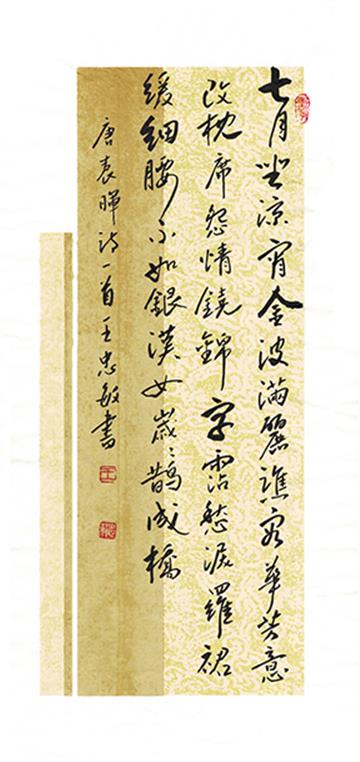 七月坐涼宵金波滿麗譙容華芳意
改枕席怨情饒錦字霑愁淚羅裙
緩細腰不如銀漢女歲〻鵲成橋
唐袁暉詩一首王忠敏書
王